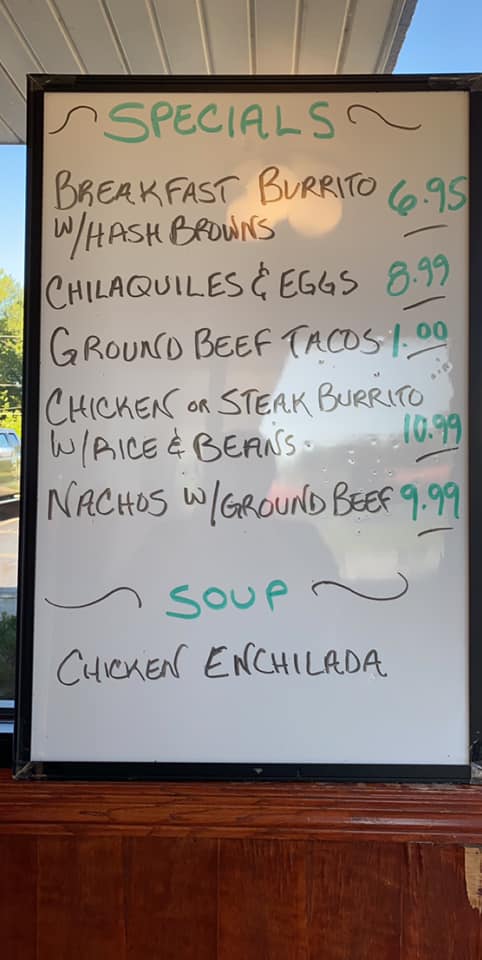 SPECIALS
BREAKFAST BURRITO 6.95
W/HASH BROWNS
CHILAQUILES & EGGS 8.99
GROUND BEEF TACOS 1.00
CHICKEN OR STEAK BURRITO
W/RICE & BEANS 10.99
NACHOS W/GROUND BEEF 9.99
SOUP
CHICKEN ENCHILADA